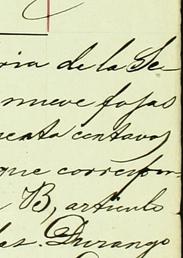 ria de la Se-
nueve fojas
centa centavos
que correspon-
B, artículo
les. Durango